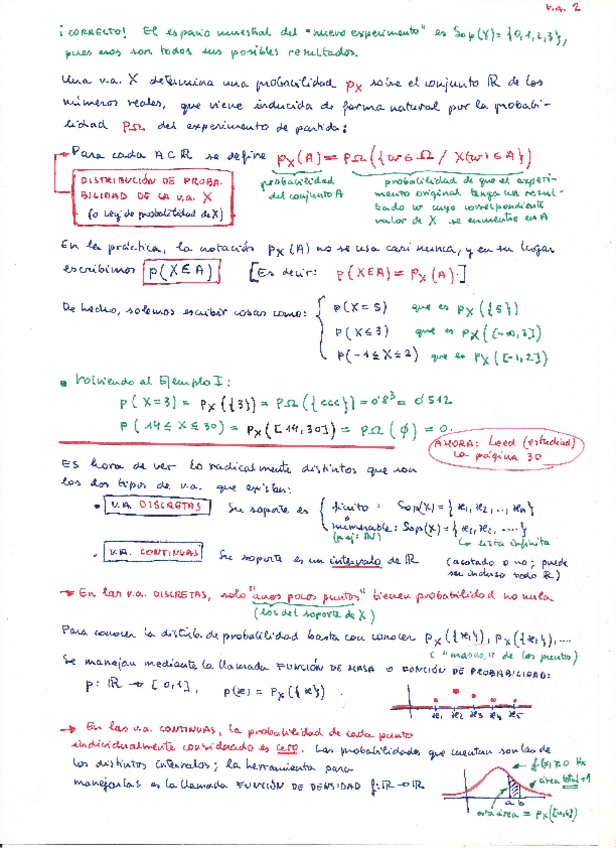 V.A. 2
¡CORRECTO! El espacio muestral del "nuevo experimento" es Sop(X)={0,1,2,3},
pues esos son todos sus posibles resultados.
Una v.a. X determina una probabilidad pX sobre el conjunto ℝ de los
números reales, que viene inducida de forma natural por la probabi-
lidad PΩ del experimento de partida:
Para cada A⊂ℝ se define pX(A)=PΩ({w∈Ω / X(w)∈A})
DISTRIBUCIÓN DE PROBA-
BILIDAD DE LA V.A. X
(o Ley de probabilidad de X)
probabilidad
del conjunto A
probabilidad de que el experi-
mento original tenga un resul-
tado w cuyo correspondiente
valor de X se encuentre en A
En la práctica, la notación pX(A) no se usa casi nunca, y en su lugar
escribimos p(X∈A) [Es decir: p(X∈A)=pX(A).]
De hecho, solemos escribir cosas como:
p(X=5) que es pX({5})
p(X≤3) que es pX([-∞,3])
p(-1≤X≤2) que es pX([-1,2])
• Volviendo al Ejemplo I:
p(X=3)=pX({3})=PΩ({ccc})=0'8³=0'512
p(14≤X≤30)=pX([14,30])=PΩ(∅)=0.
AHORA: Leed (estudiad)
la página 30
Es hora de ver lo radicalmente distintos que son
los dos tipos de v.a. que existen:
• V.A. DISCRETAS Su soporte es
finito: Sop(X)={x1,x2,...,xn}
o
numerable: Sop(X)={x1,x2,....}
(p.ej: ℕ) ↳ lista infinita
• V.A. CONTINUAS Su soporte es un intervalo de ℝ (acotado o no; puede
ser incluso todo ℝ)
→ En las v.a. DISCRETAS, solo "unos pocos puntos" tienen probabilidad no nula
(los del soporte de X)
Para conocer la distrib. de probabilidad basta con conocer pX({x1}), pX({x2}),....
("masas" de los puntos)
Se manejan mediante la llamada FUNCIÓN DE MASA o FUNCIÓN DE PROBABILIDAD:
p: ℝ → [0,1], p(x)=pX({x}).
x1 x2 x3 x4 x5
→ En las v.a. CONTINUAS, la probabilidad de cada punto
individualmente considerado es cero. Las probabilidades que cuentan son las de
los distintos intervalos; la herramienta para
manejarlas es la llamada FUNCIÓN DE DENSIDAD f:ℝ→ℝ
f(x)≥0 ∀x
área total=1
a b
esta área = pX([a,b])